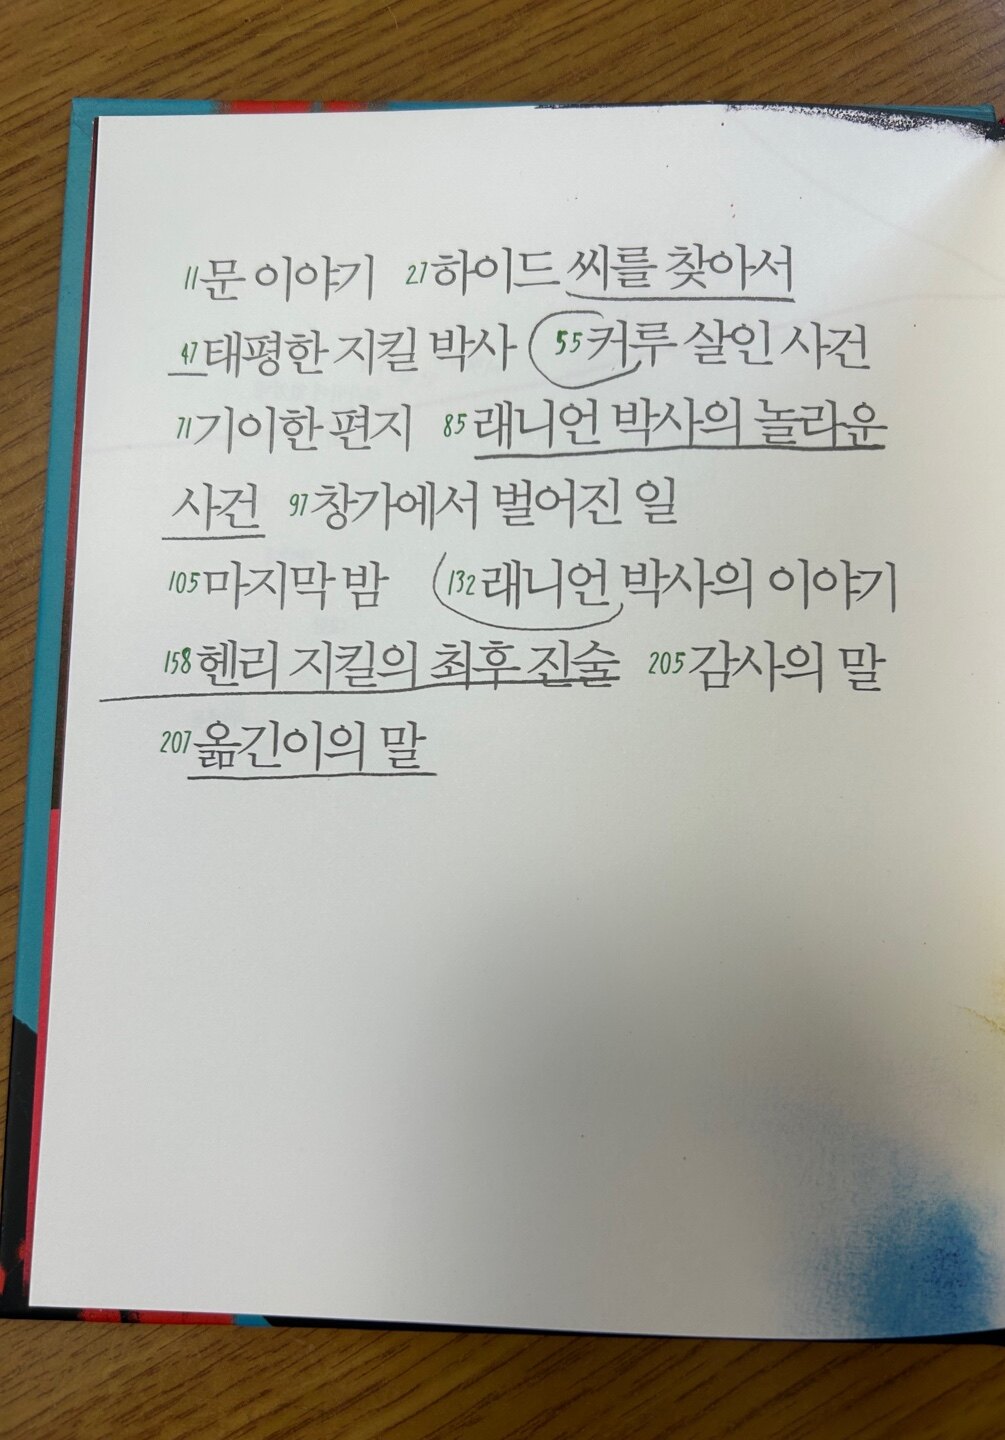 11 문 이야기 27 하이드 씨를 찾아서
47 태평한 지킬 박사 55 커루 살인 사건
71 기이한 편지 85 래니언 박사의 놀라운
사건 97 창가에서 벌어진 일
105 마지막 밤 132 래니언 박사의 이야기
158 헨리 지킬의 최후 진술 205 감사의 말
207 옮긴이의 말